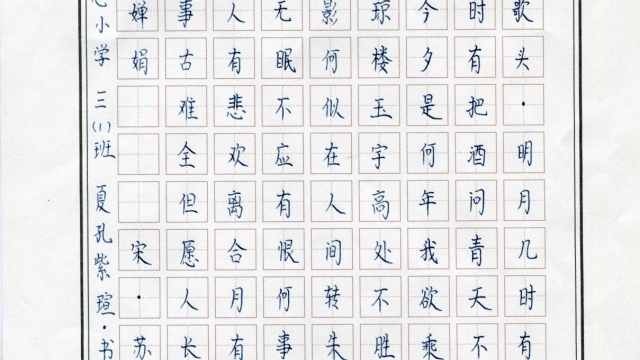 歌头·明月几时有
时有把酒问青天不
今夕是何年我欲乘
琼楼玉宇高处不胜
影何似在人间转朱
无眠不应有恨何事
人有悲欢离合月有
事古难全但愿人长
婵娟 宋·苏
小学 三(1)班 夏孔紫瑄·书